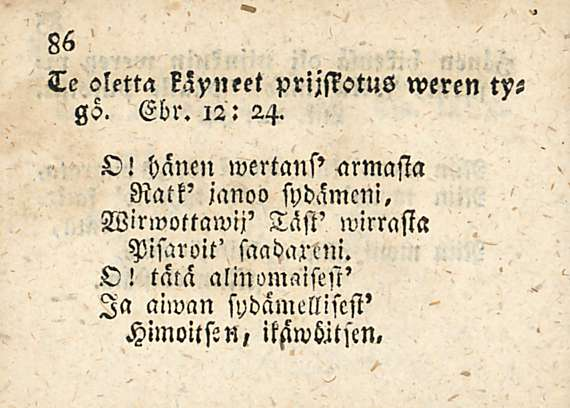 86
Te oletta käyneet prijskotus weren ty⸗
gö. Ebr. 12: 24.
O! hänen wertans' armasta
Ratk' janoo sydämeni,
Wirwottawij' Täst' wirrasta
Pisaroit' saadaxeni.
O! tätä alinomaisest'
Ja aiwan sydämellisest'
Himoitsen, ikäwöitsen,